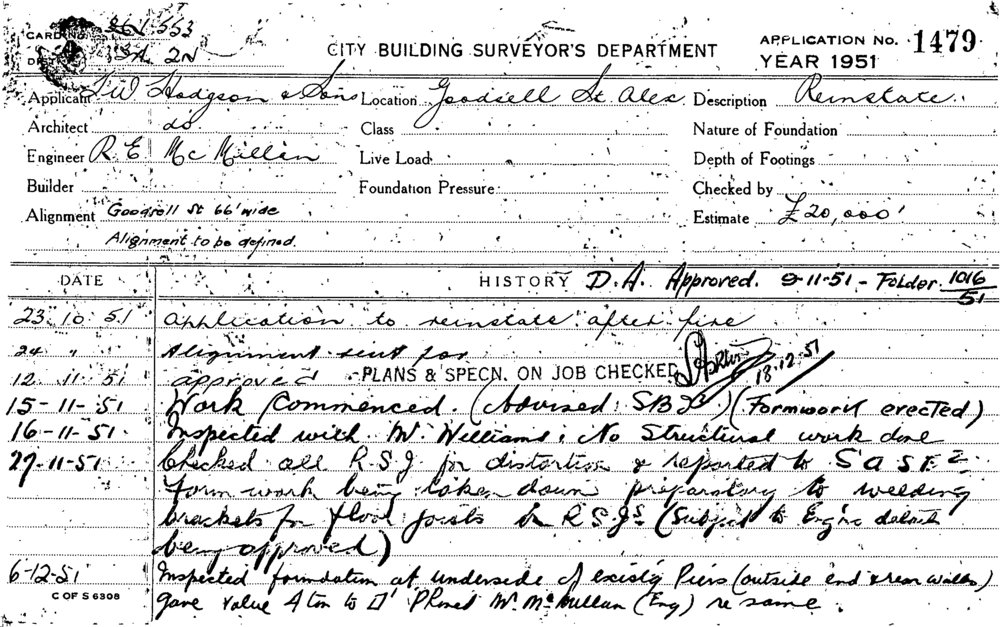 CARDING 361 553
SA 2N
CITY BUILDING SURVEYOR'S DEPARTMENT
APPLICATION No. 1479
YEAR 1951
Applicant F W Hodgson & Sons Location Goodsell St Alex Description Reinstate.
Architect do Class Nature of Foundation
Engineer R. E. McMillen Live Load Depth of Footings
Builder Foundation Pressure Checked by
Alignment Goodsell St 66' wide Estimate £20,000
Alignment to be defined.
DATE HISTORY D.A. Approved. 9-11-51 - Folder 1016/51
23. 10. 51 Application to reinstate after fire
24 " Alignment sent for
12. 11. 51 approved PLANS & SPECN. ON JOB CHECKED 18.12.51
15-11-51 Work Commenced. (Advised: SBI) (Formwork erected)
16-11-51 Inspected with Mr. Williams: No Structural work done
27-11-51 Checked all R.S.J. for distortion & reported to
Form work being taken down preparatory to welding
brackets for floor joists to R.S.Js (Subject to Eng's details
being approved)
6-12-51 Inspected foundation at underside of exist'g Piers (outside end & rear walls)
C OF S 6308
gave value 4 ton to □' Phoned Mr. McMullan (Eng) re same.